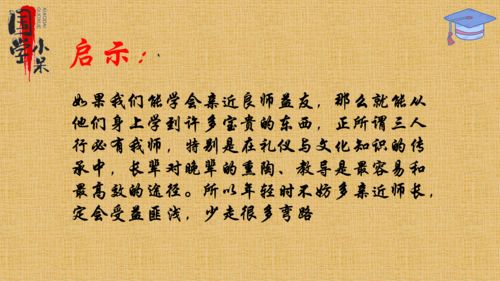 国学小呆
XIAODAI
GUOXUE
启示：
如果我们能学会亲近良师益友，那么就能从
他们身上学到许多宝贵的东西，正所谓三人
行必有我师，特别是在礼仪与文化知识的传
承中，长辈对晚辈的熏陶、教导是最容易和
最高效的途径。所以年轻时不妨多亲近师长，
定会受益匪浅，少走很多弯路